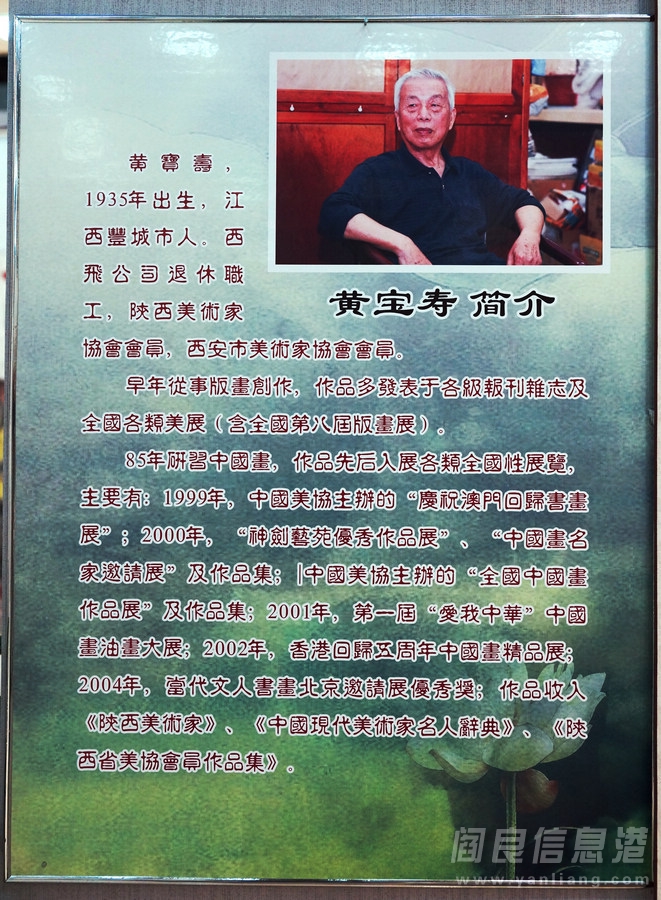 黄寶壽，
1935年出生，江
西豐城市人。西
飛公司退休職
工，陝西美術家
黄宝寿 简介
協會會員，西安市美術家協會會員。
早年從事版畫創作，作品多發表于各級報刊雜志及
全國各類美展（含全國第八屆版畫展）。
85年研習中國畫，作品先后入展各類全國性展覽，
主要有：1999年，中國美協主辦的“慶祝澳門回歸書畫
展”；2000年，“神劍藝苑優秀作品展”、“中國畫名
家邀請展”及作品集；|中國美協主辦的“全國中國畫
作品展”及作品集；2001年，第一屆“愛我中華”中國
畫油畫大展；2002年，香港回歸五周年中國畫精品展；
2004年，當代文人書畫北京邀請展優秀獎；作品收入
《陝西美術家》、《中國現代美術家名人辭典》、《陝
西省美協會員作品集》。
阎良信息港
www.yanliang.com